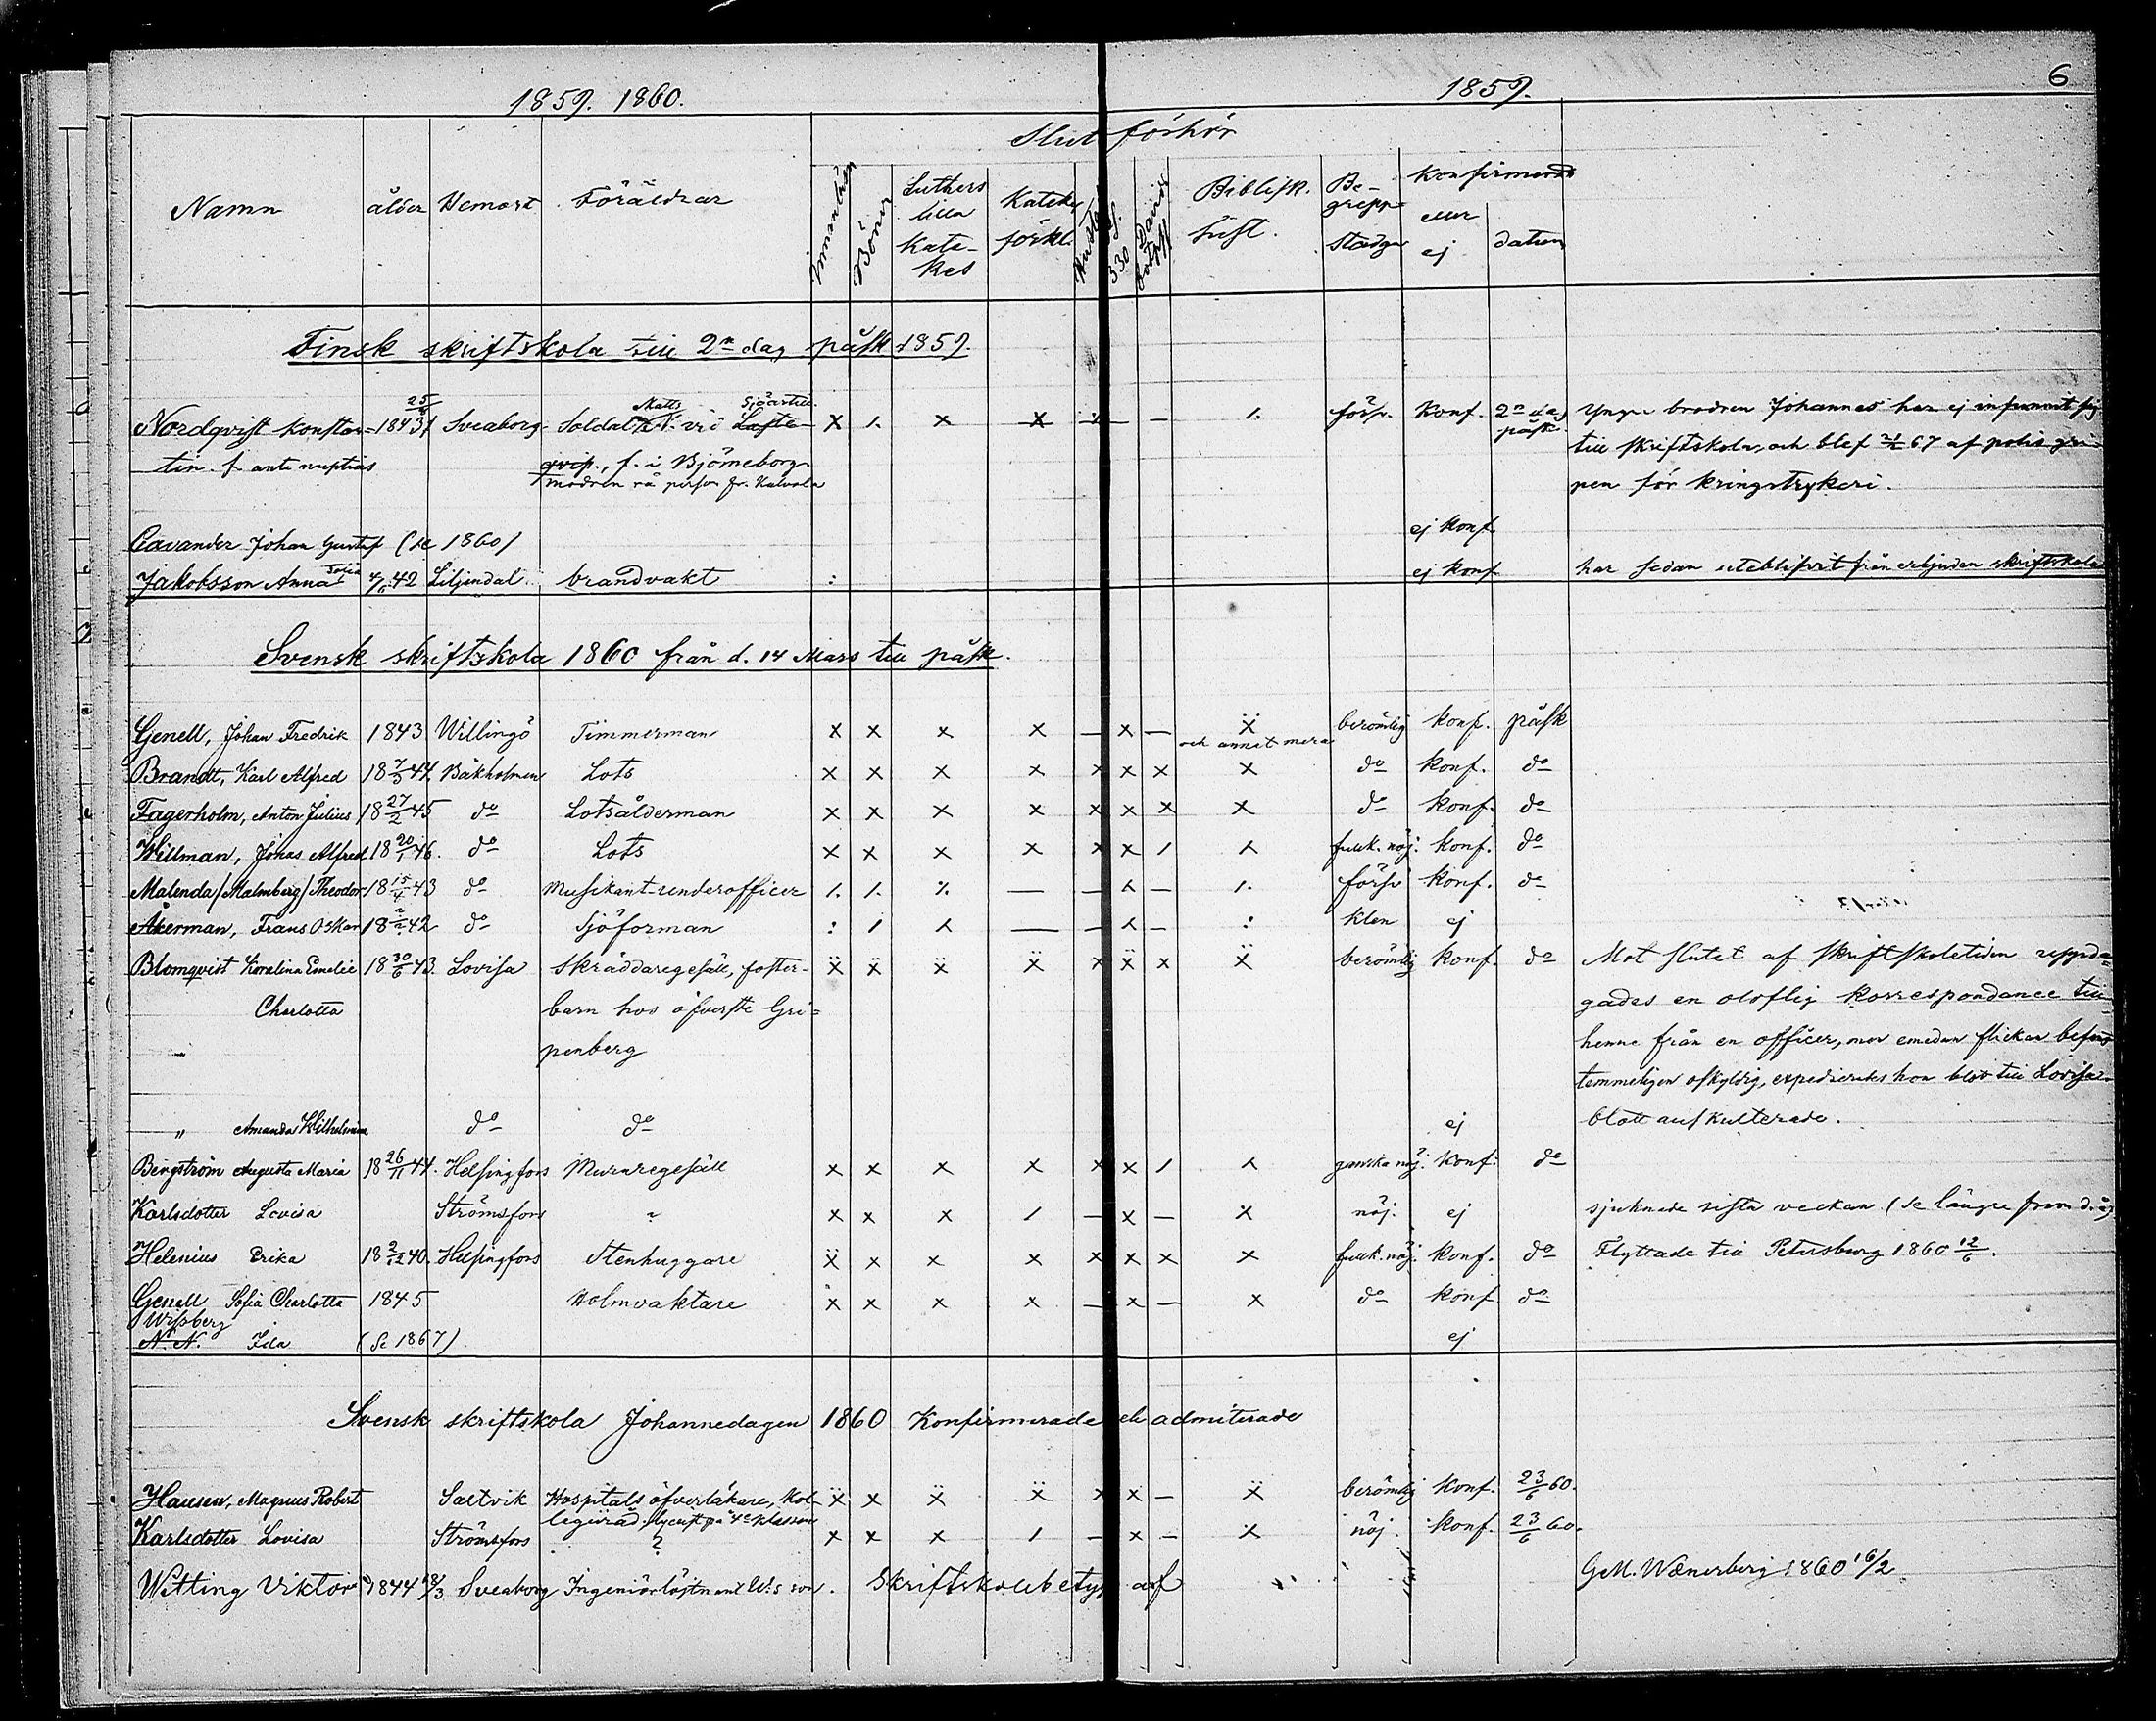 1859. 1860.
1859.
6
Slut förhör
Namn ålder Hemort Föräldrar Innanläsn Böner Luthers lilla Kate-kes Katek. förkl. Hustafl. Davids botpss Biblisk. hist. Be-grepp stadga Konfirmerad eller ej datum
Finsk skriftskola till 2n dag påsk 1859.
Nordqvist Konstan- 25/ 1843 Sveaborg Soldat Matts N. vid Sjöartill. Läste- X /. X X — /. försv. Konf. 2n dag påsk Yngre brodren Johannes har ej infunnit sig
tin f. ante nuptias qvip., f. i Björneborg till skriftskola, och blef 67 af polis gri-
modren rå person fr. Kalvola pen för kringstrykeri.
Cavander Johan Gustaf (se 1860) ej konf.
Jakobsson Anna Sofia 42 Liljendal brandvakt : ej konf har sedan uteblifvit från erbjuden skriftskola
Svensk skriftskola 1860 från d. 14 Mars till påsk.
Genell, Johan Fredrik 1843 Willingö Timmerman X X X X — X — Ẍ berömlig konf. påsk
och annat mera
Brandt, Karl Alfred 18 44 Båkholmen Lots X X X X X X X X do konf. do
Fagerholm, Anton Julius 18 27/2 45 do Lotsålderman X X X X X X X X do konf. do
Willman, Jonas Alfred 18 20/1 46. do Lots X X X X X X / X fullk. nöj. konf. do
Malenda /Malmberg/ Theodor 18 15/4 43 do Musikant-underofficer /. /. /. — — X — /. försv konf. do
Åkerman, Frans Oskar 18 42 do Sjöforman : / X — — X — : klen ej
Blomqvist Karolina Emelie 18 30/6 43. Lovisa Skräddaregesäll, foster- Ẍ Ẍ Ẍ Ẍ X Ẍ X Ẍ berömlig konf. do Mot slutet af skriftskoletiden uppda-
Charlotta barn hos öfverste Gri- gades en oloflig korrespondance till
penberg henne från en officer, men emedan flickan befans
temmeligen oskyldig, expedierades hon blott till Lovisa.
" Amanda Wilhelmina do do ej blott auskulterade.
Bergström Augusta Maria 18 26/11 44. Helsingfors Muraregesäll X X X X X X / X ganska nöj. Konf. do
Karlsdotter Lovisa Strömsfors " X X X / — X — X nöj. ej sjuknade sista veckan (se längre fram d. å)
Helenius Erika 18 2/12 40. Helsingfors Stenhuggare Ẍ X X X X X X X fullk. nöj. konf. do Flyttade till Petersburg 1860 12/6.
Genell Sofia Charlotta 1845 Holmvaktare Ẍ X X X — X — X do konf do
Wissberg
N. N. Ida (Se 1867) ej
Svensk skriftskola Johannedagen 1860 Konfirmerade ch admiterade
Hausen, Magnus Robert Saltvik Hospitals öfverläkare, Kol- Ẍ X Ẍ Ẍ X Ẍ — Ẍ berömlig konf. 23/6 60.
legiiråd. lyceist på 4e klassen
Karlsdotter Lovisa Strömsfors ? X X X / — X — X nöj. konf. 23/6 60.
Witting Viktor 1844 18/3 Sveaborg Ingeniörlöjtnant W:s son. Skriftskolebetyg af G.M. Wænerberg 1860 16/2